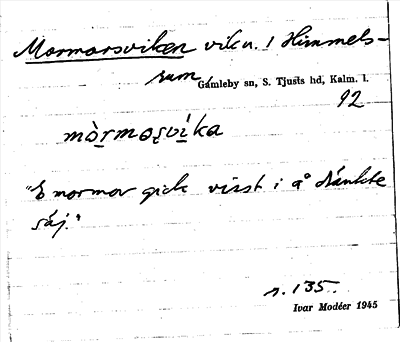 Mormorsviken vik v. I Himmels-
rum,
Gamleby sn, S. Tjusts hd, Kalm. l.
92
mòrmoșvíka
"E mormor gick visst i å dränkte
säj."
s. 135.
Ivar Modéer 1945